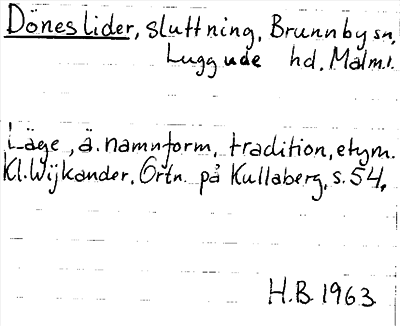 Döneslider, sluttning, Brunnby sn,
Luggude hd. Malm.l.
Läge, ä. namnform, tradition, etym.
Kl. Wijkander, Ortn. på Kullaberg, s. 54.
H.B. 1963